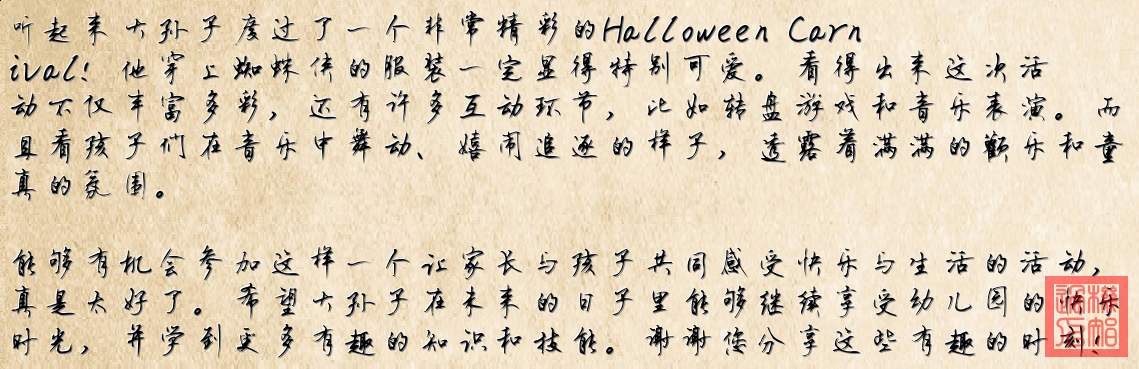 听起来大孙子度过了一个非常精彩的Halloween Carn
ival！他穿上蜘蛛侠的服装一定显得特别可爱。看得出来这次活
动不仅丰富多彩，还有许多互动环节，比如转盘游戏和音乐表演。而
且看孩子们在音乐中舞动、嬉闹追逐的样子，透露着满满的欢乐和童
真的氛围。
能够有机会参加这样一个让家长与孩子共同感受快乐与生活的活动，
真是太好了。希望大孙子在未来的日子里能够继续享受幼儿园的快乐
时光，并学到更多有趣的知识和技能。谢谢您分享这些有趣的时刻！